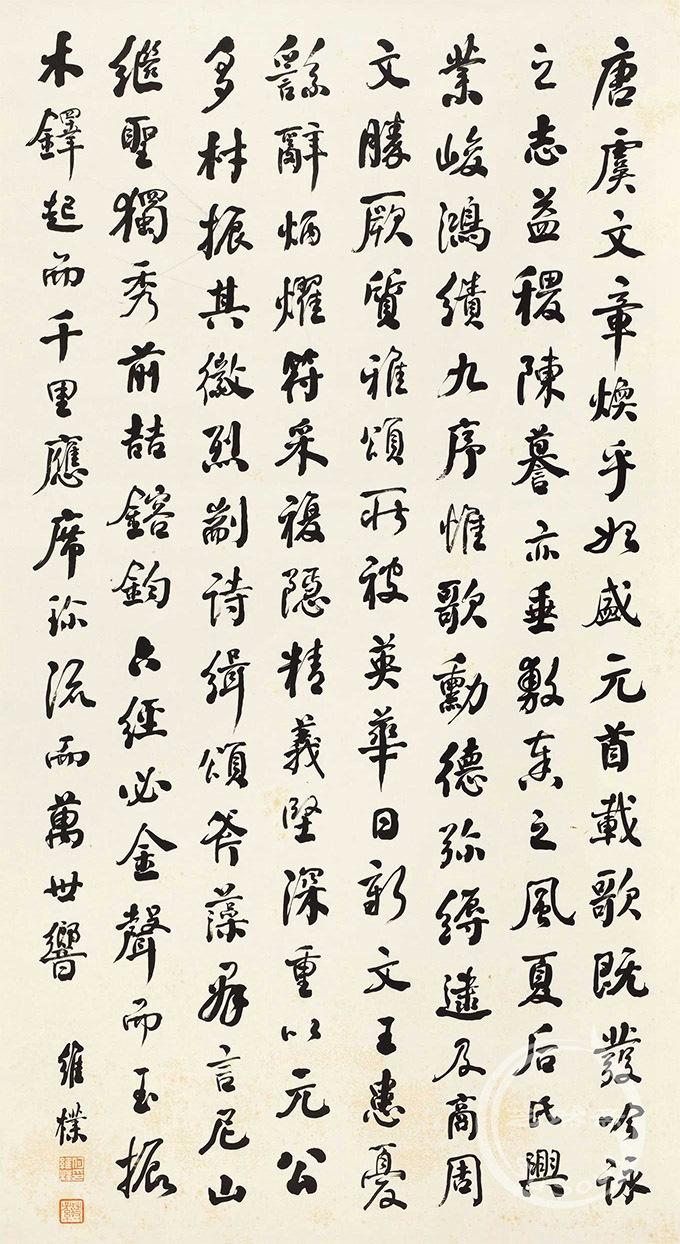 唐虞文章煥乎始盛元首載歌既發吟詠
之志益稷陳謩亦垂敷奏之風夏后氏興
業峻鴻績九序惟歌勳德弥縟逮及商周
文勝厥質雅頌所被英華日新文王患憂
繇辭炳燿符采複隱精義堅深重以元公
多材振其徽烈剬詩緝頌斧藻群言尼山
繼聖獨秀前喆鎔鈞六經必金聲而玉振
木鐸起而千里應席珍流而萬世響
維樸